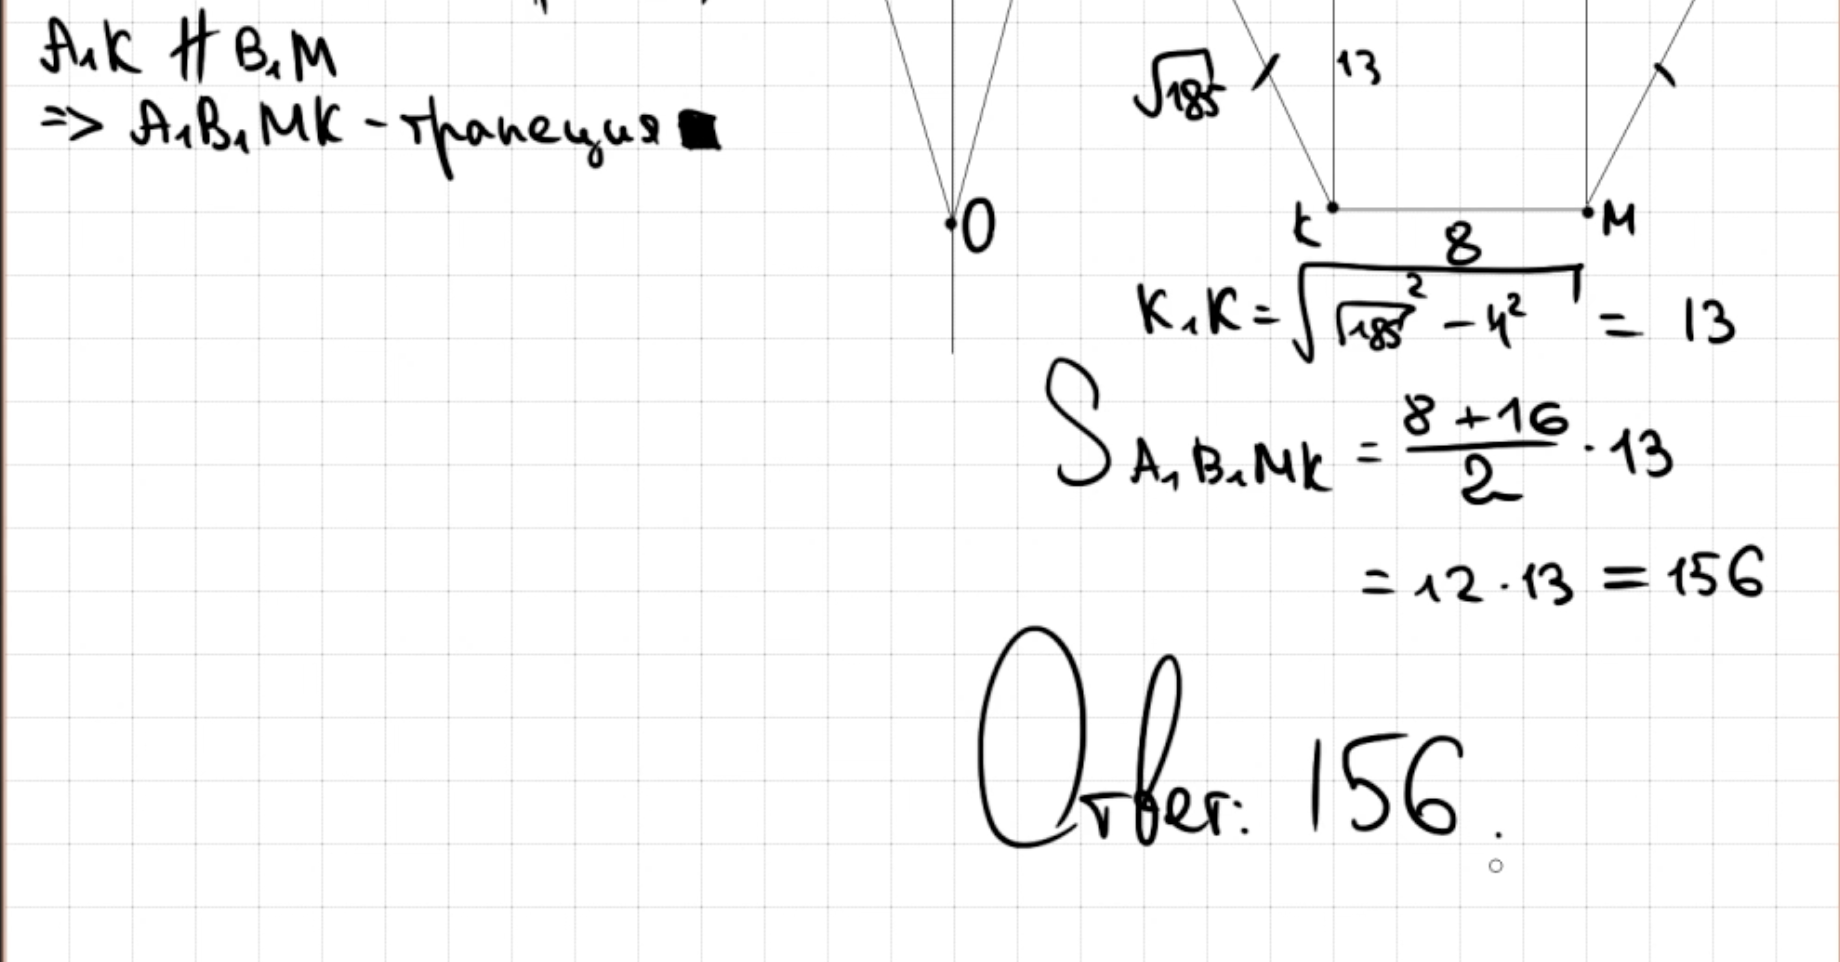 A₁K ∦ B₁M
=> A₁B₁MK - трапеция ■
O
√185
13
K
M
8
K₁K = √(√185² - 4²) = 13
S A₁B₁MK = (8 + 16)/2 · 13
= 12 · 13 = 156
Ответ: 156.